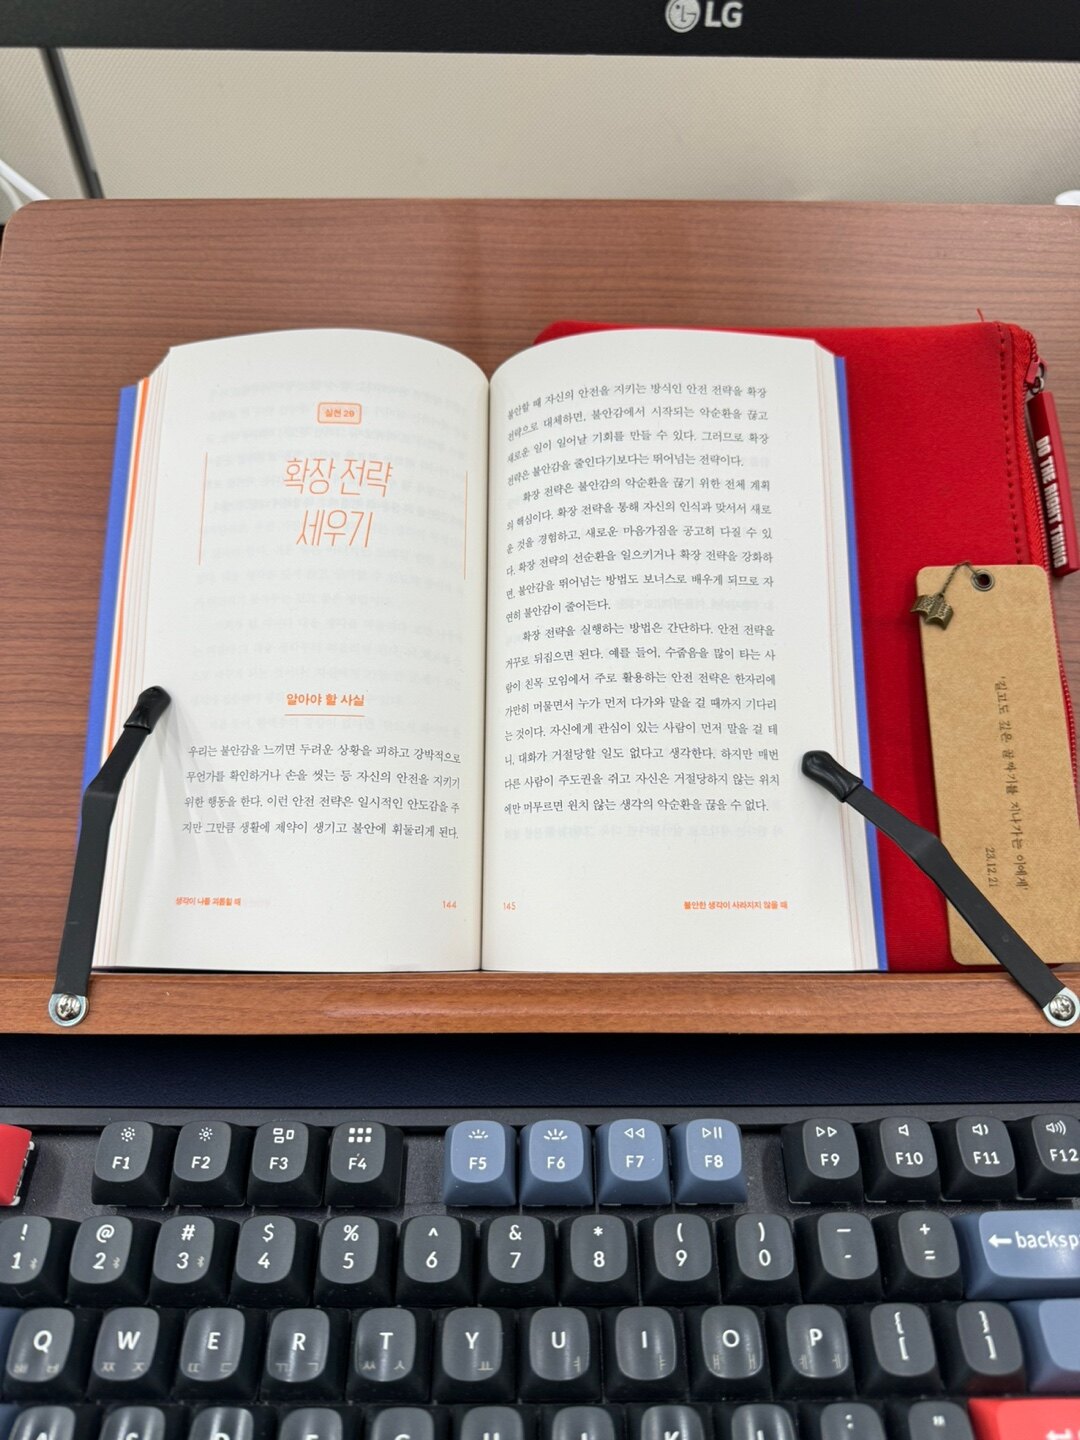 LG
실천 29
확장 전략
세우기
알아야 할 사실
우리는 불안감을 느끼면 두려운 상황을 피하고 강박적으로
무언가를 확인하거나 손을 씻는 등 자신의 안전을 지키기
위한 행동을 한다. 이런 안전 전략은 일시적인 안도감을 주
지만 그만큼 생활에 제약이 생기고 불안에 휘둘리게 된다.
생각이 나를 괴롭힐 때
144
불안할 때 자신의 안전을 지키는 방식인 안전 전략을 확장
전략으로 대체하면, 불안감에서 시작되는 악순환을 끊고
새로운 일이 일어날 기회를 만들 수 있다. 그러므로 확장
전략은 불안감을 줄인다기보다는 뛰어넘는 전략이다.
확장 전략은 불안감의 악순환을 끊기 위한 전체 계획
의 핵심이다. 확장 전략을 통해 자신의 인식과 맞서서 새로
운 것을 경험하고, 새로운 마음가짐을 공고히 다질 수 있
다. 확장 전략의 선순환을 일으키거나 확장 전략을 강화하
면, 불안감을 뛰어넘는 방법도 보너스로 배우게 되므로 자
연히 불안감이 줄어든다.
확장 전략을 실행하는 방법은 간단하다. 안전 전략을
거꾸로 뒤집으면 된다. 예를 들어, 수줍음을 많이 타는 사
람이 친목 모임에서 주로 활용하는 안전 전략은 한자리에
가만히 머물면서 누가 먼저 다가와 말을 걸 때까지 기다리
는 것이다. 자신에게 관심이 있는 사람이 먼저 말을 걸 테
니, 대화가 거절당할 일도 없다고 생각한다. 하지만 매번
다른 사람이 주도권을 쥐고 자신은 거절당하지 않는 위치
에만 머무르면 원치 않는 생각의 악순환을 끊을 수 없다.
145
불안한 생각이 사라지지 않을 때
DO THE RIGHT THING
'길고도 깊은 골짜기를 지나가는 이에게'
23.12.21
F1 F2 F3 F4 F5 F6 F7 F8 F9 F10 F11 F12
! @ # $ % ^ & * ( ) — +
1 2 3 4 5 6 7 8 9 0 - = backsp
Q W E R T Y U I O P { }
ㅃ ㅂ ㅉ ㅈ ㄸ ㄷ ㄲ ㄱ ㅆ ㅅ ㅛ ㅕ ㅑ ㅒ ㅐ ㅖ ㅔ [ ]